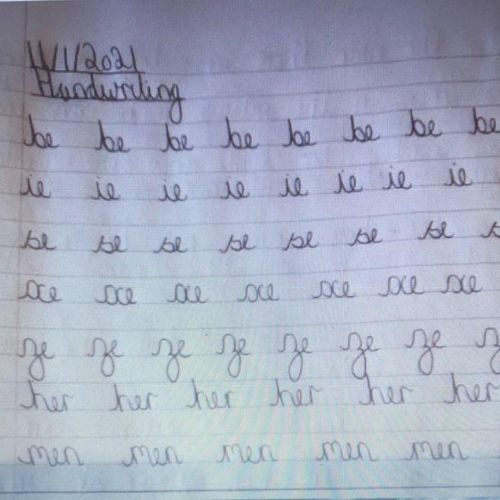 11/1/2021
Handwriting
be be be be be be be be
ie ie ie ie ie ie ie ie
se se se se se se se s
xe xe xe xe xe xe xe
ze ze ze ze ze ze ze z
her her her her her her
men men men men men